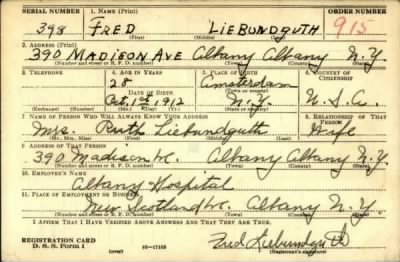 SERIAL NUMBER 1. NAME (Print) ORDER NUMBER
398 FRED LIEBUNDGUTH 915
(First) (Middle) (Last)
2. ADDRESS (Print)
390 MADISON AVE Albany Albany N.Y.
(Number and street or R. F. D. number) (Town) (County) (State)
3. TELEPHONE 4. AGE IN YEARS 5. PLACE OF BIRTH 6. COUNTRY OF CITIZENSHIP
28 Amsterdam
DATE OF BIRTH (Town or county)
Oct. 1st 1912 N.Y. U.S.A.
(Exchange) (Number) (Mo.) (Day) (Yr.) (State or country)
7. NAME OF PERSON WHO WILL ALWAYS KNOW YOUR ADDRESS 8. RELATIONSHIP OF THAT PERSON
Mrs. Ruth Liebundguth Wife
(Mr., Mrs., Miss) (First) (Middle) (Last)
9. ADDRESS OF THAT PERSON
390 Madison Albany Albany N.Y.
(Number and street or R. F. D. number) (Town) (County) (State)
10. EMPLOYER'S NAME
Albany Hospital
11. PLACE OF EMPLOYMENT OR BUSINESS
New Scotland Albany N.Y.
(Number and street or R. F. D. number) (Town) (County) (State)
I AFFIRM THAT I HAVE VERIFIED ABOVE ANSWERS AND THAT THEY ARE TRUE.
REGISTRATION CARD
D. S. S. Form 1 (over) 16-17105 Fred Liebundguth
(Registrant's signature)